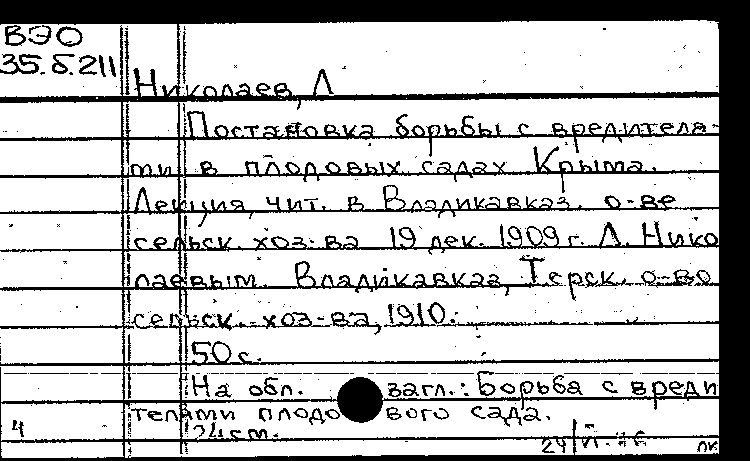 ВЭО
35.б.211
Николаев, Л
Постановка борьбы с вредителя-
ми в плодовых садах Крыма.
Лекция, чит. в Владикавказ. о-ве
сельск. хоз-ва 19 дек. 1909 г. Л. Нико
лаевым. Владикавказ, Терск. о-во
сельск. хоз-ва, 1910.
50 с.
На обл. загл.: Борьба с вреди
телями плодового сада.
4 24 см.
24/VI